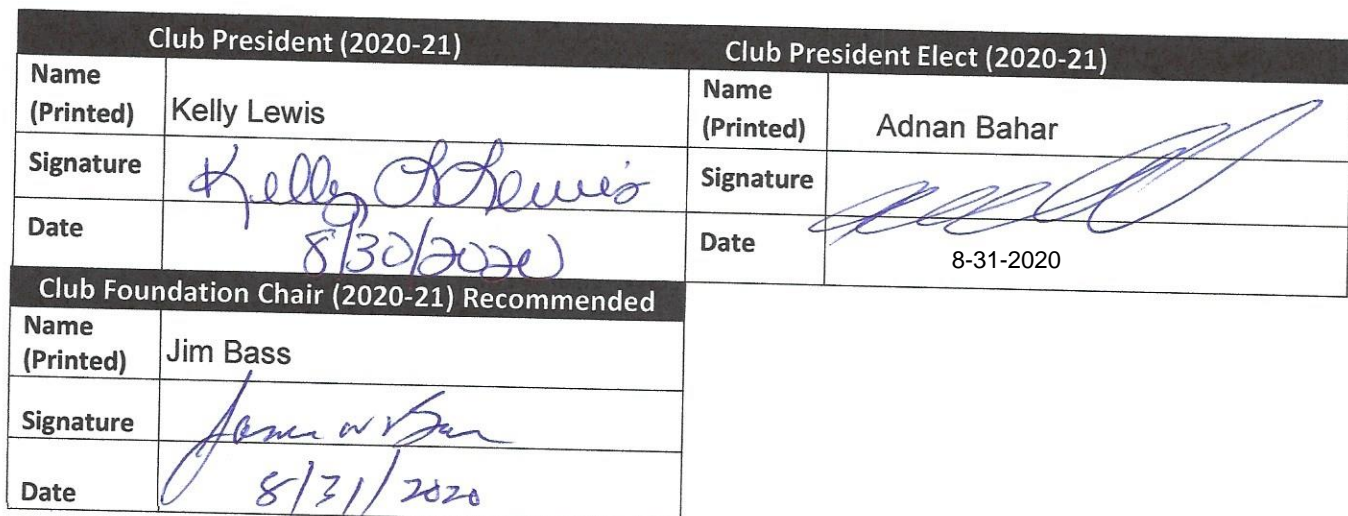 Club President (2020-21)
Name
(Printed)
Kelly Lewis
Signature
Kelly L Lewis
Date
8/30/2020
Club President Elect (2020-21)
Name
(Printed)
Adnan Bahar
Signature
Date
8-31-2020
Club Foundation Chair (2020-21) Recommended
Name
(Printed)
Jim Bass
Signature
James W Bass
Date
8/31/2020